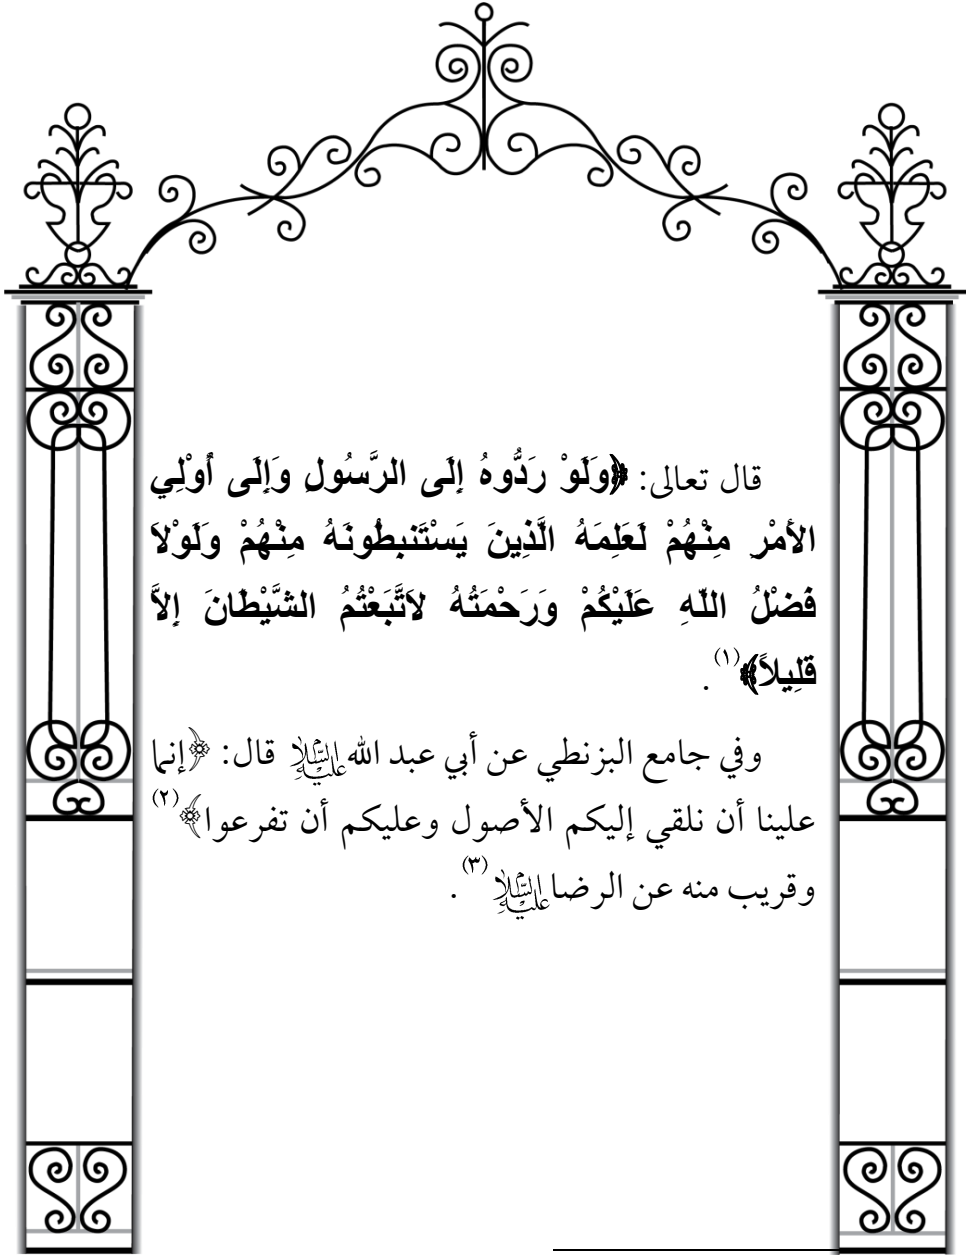 قال تعالى: ﴿وَلَوْ رَدُّوهُ إِلَى الرَّسُولِ وَإِلَى أُوْلِي
الأَمْرِ مِنْهُمْ لَعَلِمَهُ الَّذِينَ يَسْتَنبِطُونَهُ مِنْهُمْ وَلَوْلاَ
فَضْلُ اللّهِ عَلَيْكُمْ وَرَحْمَتُهُ لاَتَّبَعْتُمُ الشَّيْطَانَ إِلاَّ
قَلِيلاً﴾(١).
وفي جامع البزنطي عن أبي عبد الله عليه السلام قال: ﴿إنما
علينا أن نلقي إليكم الأصول وعليكم أن تفرعوا﴾(٢)
وقريب منه عن الرضا عليه السلام(٣).